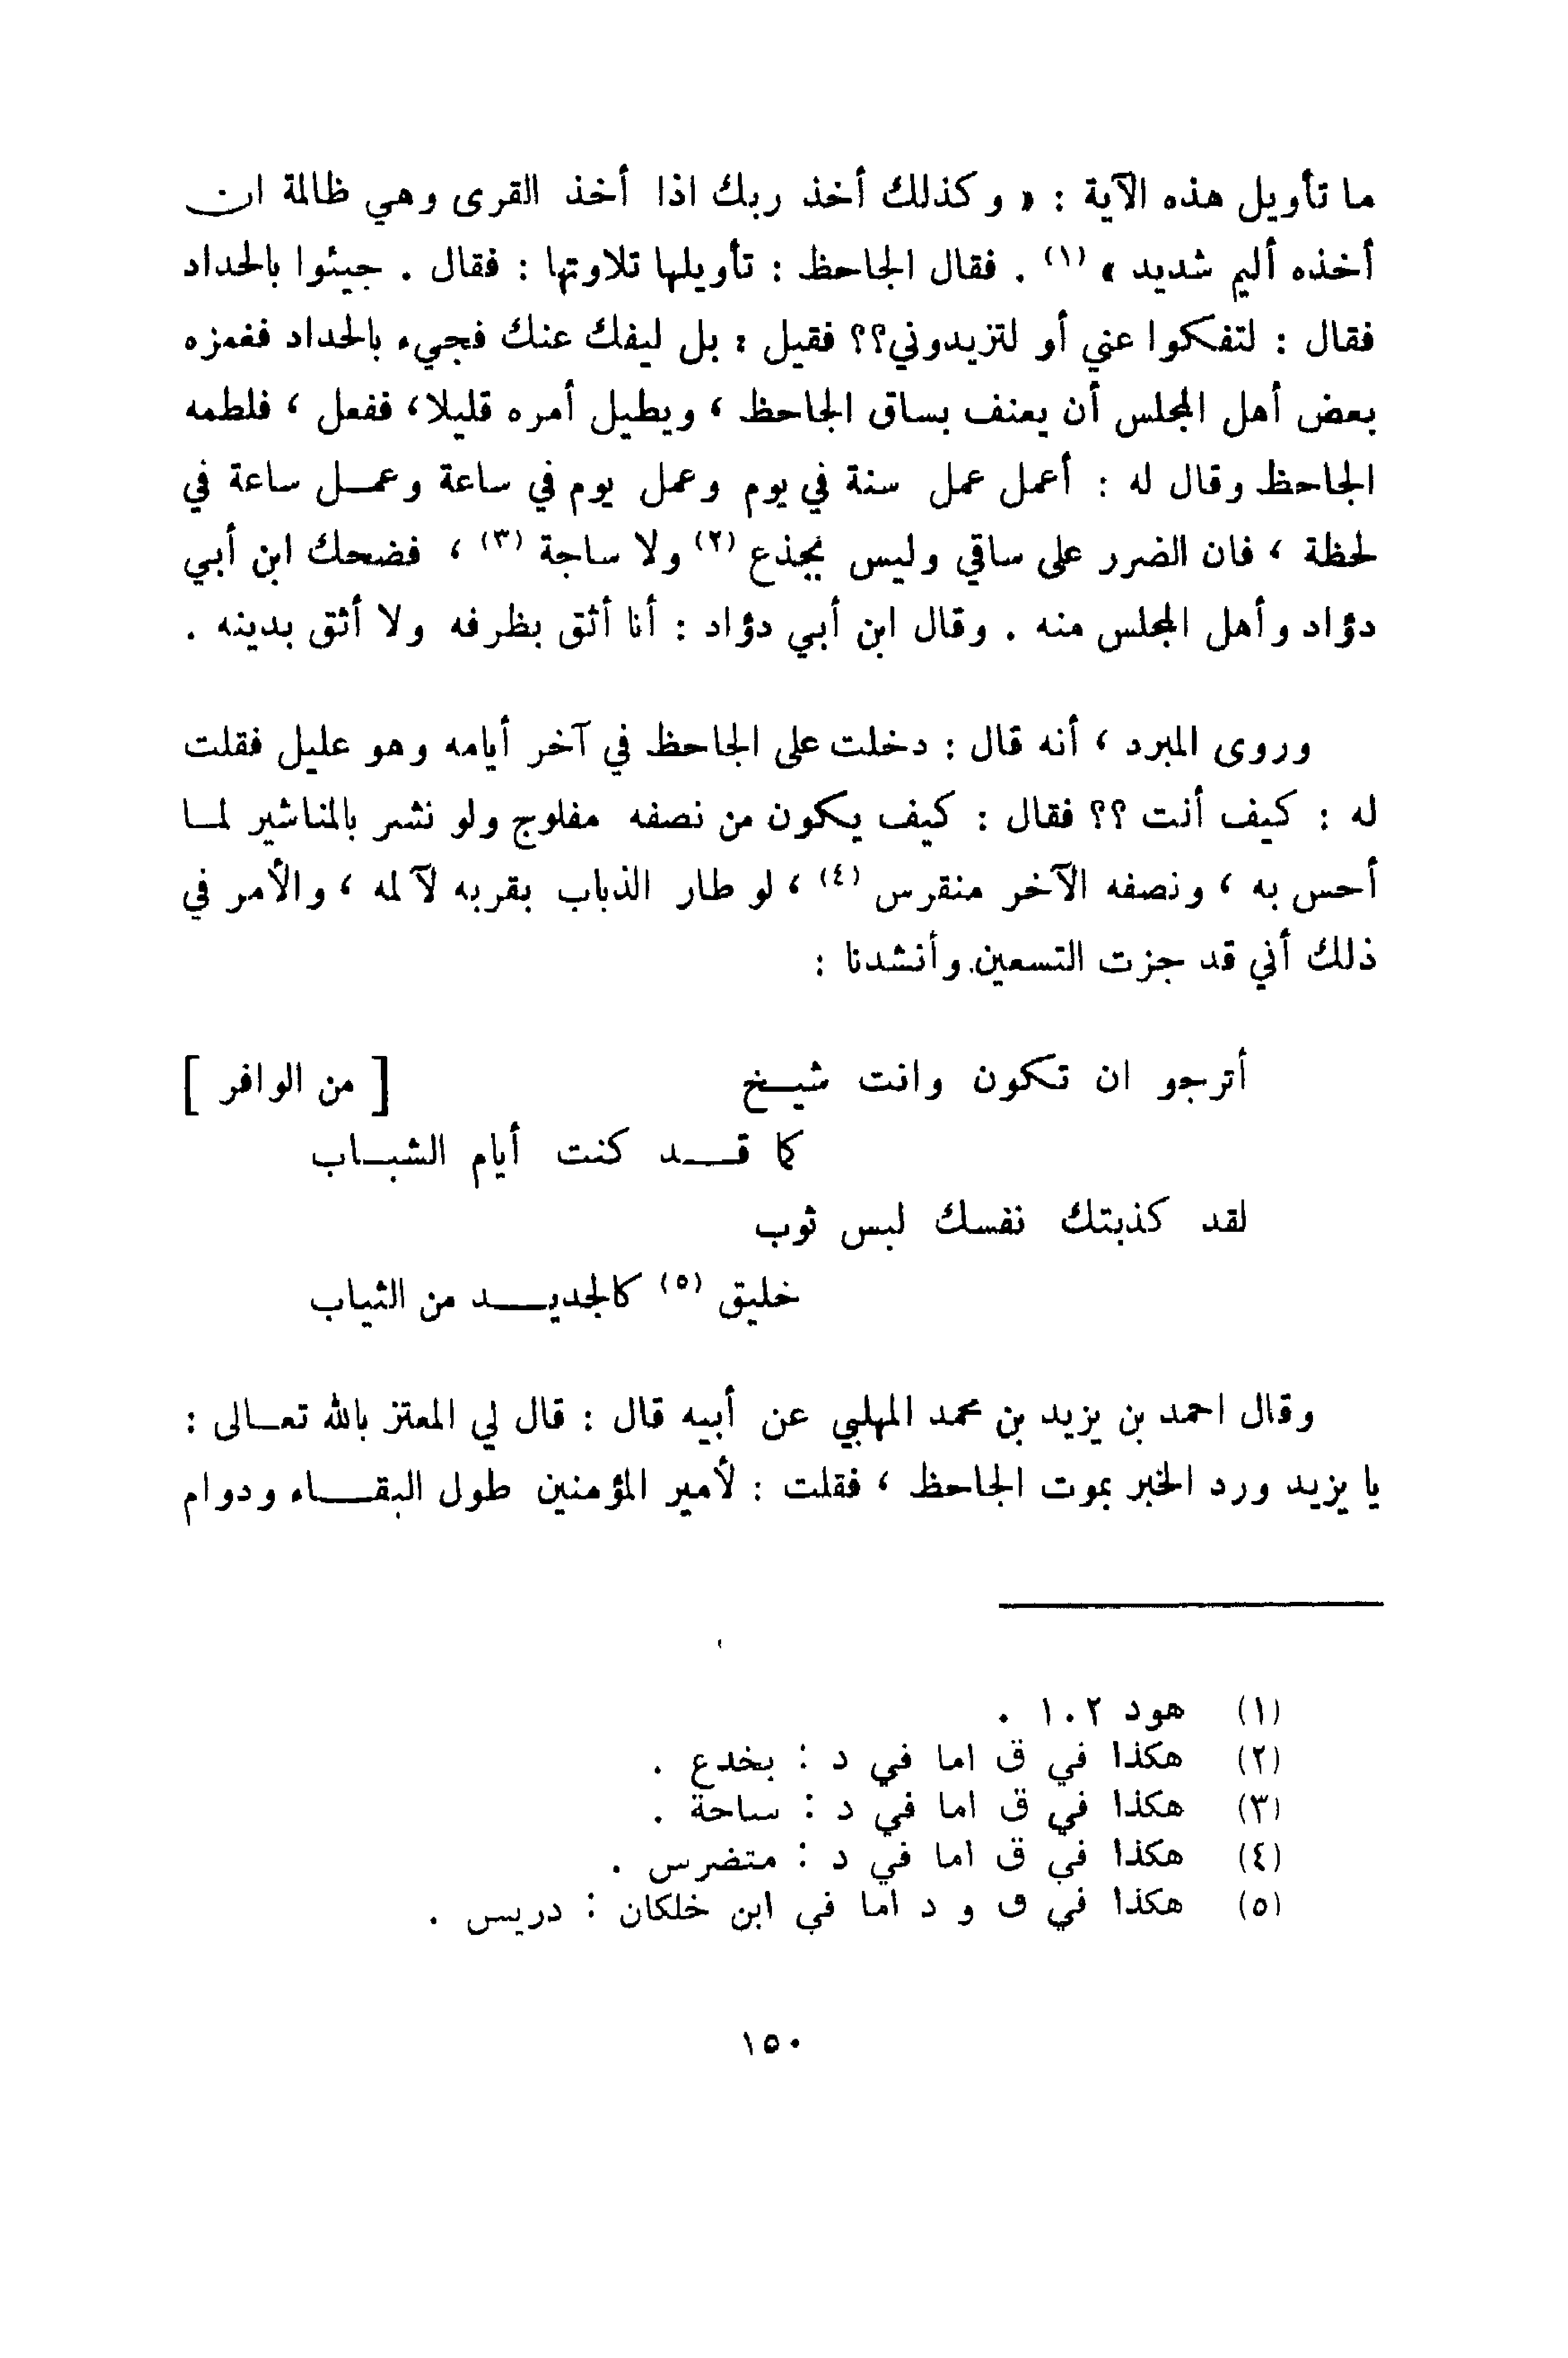 ما تأويل هذه الآية : « وكذلك أخذ ربك اذا أخذ القرى وهي ظالمة ان
أخذه أليم شديد » (١) . فقال الجاحظ : تأويلها تلاوتها : فقال . جيئوا بالحداد
فقال : لتفكوا عني أو لتزيدوني؟؟ فقيل : بل ليفك عنك فجيء بالحداد فغمزه
بعض أهل المجلس أن يعنف بساق الجاحظ ، ويطيل أمره قليلا، ففعل ، فلطمه
الجاحظ وقال له : أعمل عمل سنة في يوم وعمل يوم في ساعة وعمل ساعة في
لحظة ، فان الضرر على ساقي وليس بجذع (٢) ولا ساجة (٣) ، فضحك ابن أبي
دؤاد وأهل المجلس منه . وقال ابن أبي دؤاد : أنا أثق بظرفه ولا أثق بدينه .
وروى المبرد ، أنه قال : دخلت على الجاحظ في آخر أيامه وهو عليل فقلت
له : كيف أنت ؟؟ فقال : كيف يكون من نصفه مفلوج ولو نشر بالمناشير لما
أحس به ، ونصفه الآخر منقرس (٤) ، لو طار الذباب بقربه لآلمه ، والأمر في
ذلك أني قد جزت التسعين. وأنشدنا :
أترجو ان تكون وانت شيخ [ من الوافر ]
كما قد كنت أيام الشباب
لقد كذبتك نفسك لبس ثوب
خليق (٥) كالجديد من الثياب
وقال احمد بن يزيد بن محمد المهلبي عن أبيه قال : قال لي المعتز بالله تعالى :
يا يزيد ورد الخبر بموت الجاحظ ، فقلت : لأمير المؤمنين طول البقاء ودوام
(١) هود ١٠٢ .
(٢) هكذا في ق اما في د : بخدع .
(٣) هكذا في ق اما في د : ساحة .
(٤) هكذا في ق اما في د : متضرس .
(٥) هكذا في ق و د اما في ابن خلكان : دريس .
١٥٠